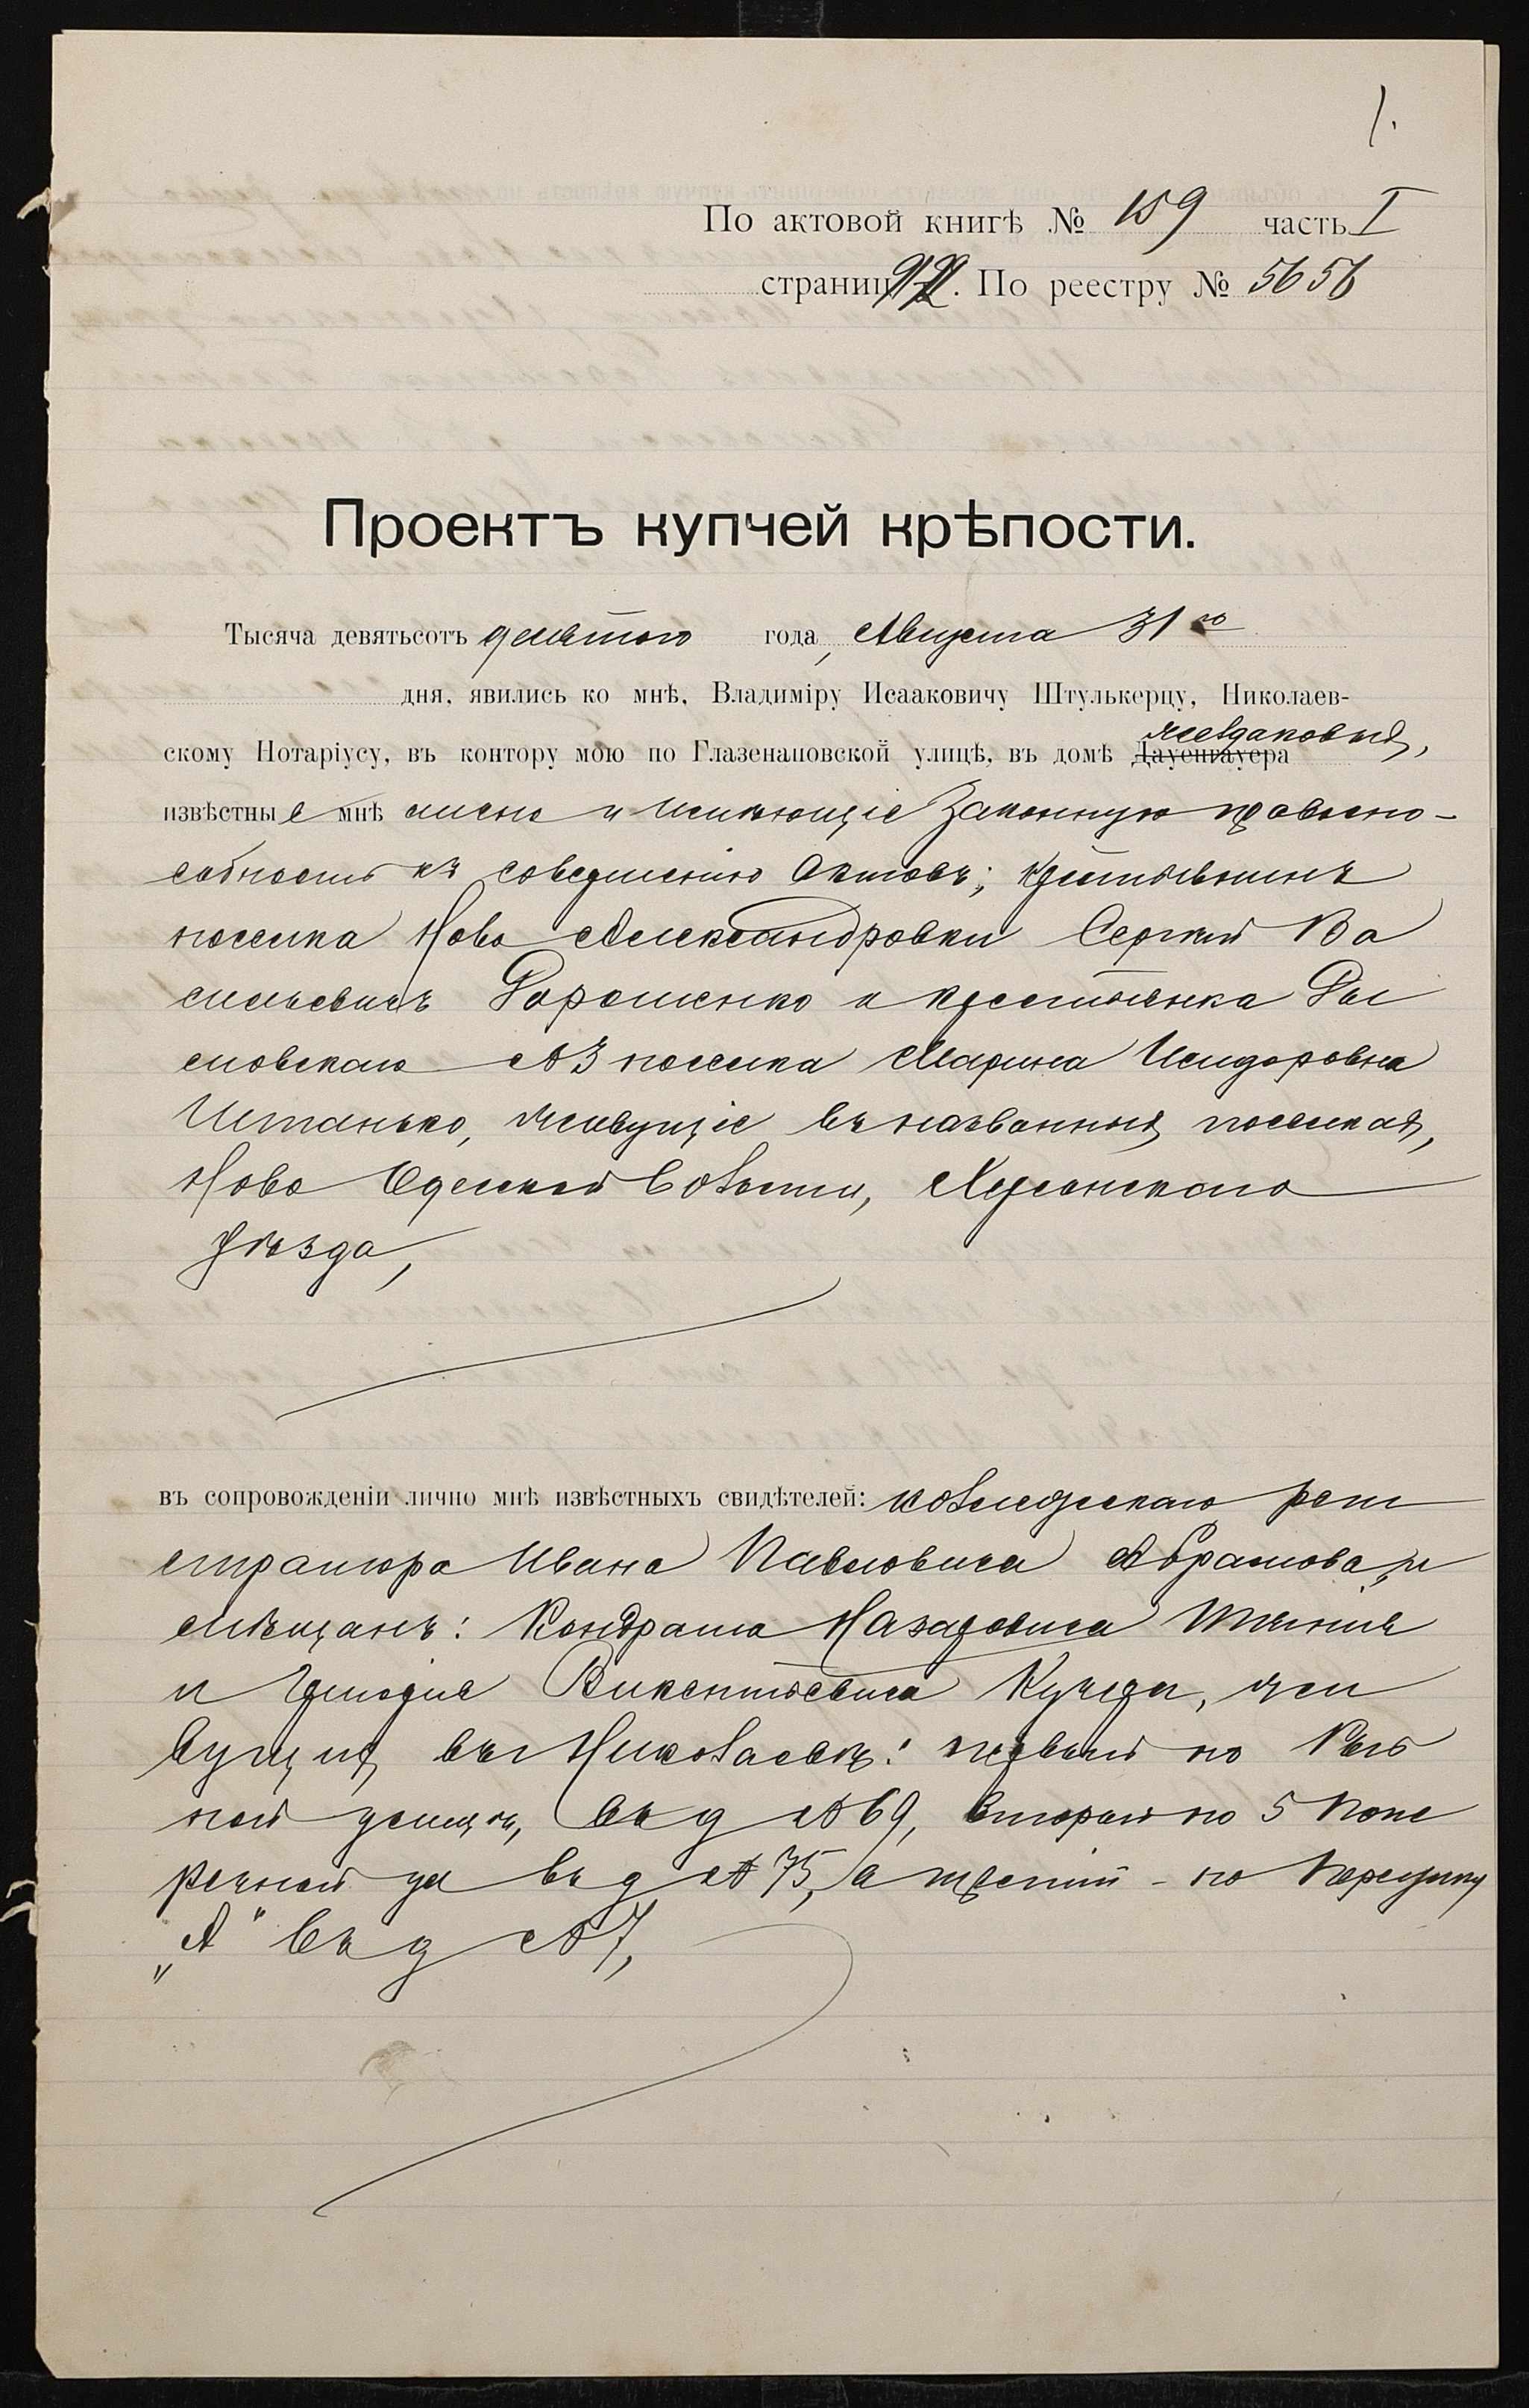 1.
По актовой книгѣ № 159 часть I
страниц. По реестру № 5656
Проектъ купчей крѣпости.
Тысяча девятьсотъ девятого года, Августа 31 го
дня, явились ко мнѣ, Владиміру Исааковичу Штулькерцу, Николаев-
скому Нотаріусу, въ контору мою по Глазенаповской улицѣ, въ домѣ Дауенгауера
извѣстные мнѣ лично и имѣющіе законную правоспо-
собность къ совершенію актовъ: крестьянинъ
поселка Ново Александровки Сергѣй Ва
сильевичъ Дорошенко и крестьянка
№ 3 поселка Марина Исидоровна
Штанько, живущіе въ названныхъ поселкахъ,
Ново Одесской волости, Херсонскаго
уѣзда,
въ сопровожденіи лично мнѣ извѣстныхъ свидѣтелей: коллежскаго реги
стратора Ивана Павловича Абрамова и
мѣщанъ: Кондрата Назаровича
и Викентьевича Кучеры, жи
вущихъ въ Николаевѣ: первый по
ной улицѣ, въ д № 69, второй по 5 Попе
речной ул въ д № 75, а третій - по Переулку
„А" въ д № 7,